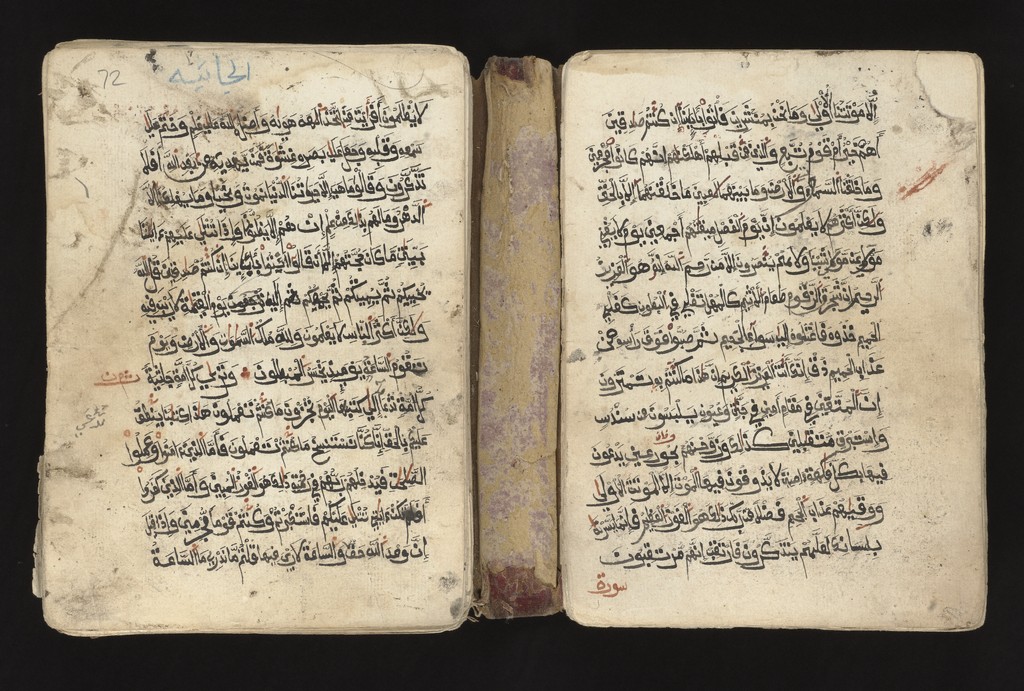 إلا موتتنا الأولى وما نحن بمنشرين فأتوا بآبائنا إن كنتم صدقين
أهم خير أم قوم تبع والذين من قبلهم أهلكنهم إنهم كانوا مجرمين
وما خلقنا السموت والأرض وما بينهما لعبين ما خلقنهما إلا بالحق
ولكن أكثرهم لا يعلمون إن يوم الفصل ميقتهم أجمعين يوم لا يغني
مولى عن مولى شيئا ولا هم ينصرون إلا من رحم الله إنه هو العزيز
الرحيم إن شجرت الزقوم طعام الأثيم كالمهل تغلي في البطون كغلي
الحميم خذوه فاعتلوه إلى سواء الجحيم ثم صبوا فوق رأسه من
عذاب الحميم ذق إنك أنت العزيز الكريم إن هذا ما كنتم به تمترون
إن المتقين في مقام أمين في جنت وعيون يلبسون من سندس
وإستبرق متقبلين كذلك وزوجنهم بحور عين يدعون
فيها بكل فكهة ءامنين لا يذوقون فيها الموت إلا الموتة الأولى
ووقيهم عذاب الجحيم فضلا من ربك ذلك هو الفوز العظيم فإنما يسرنه
بلسانك لعلهم يتذكرون فارتقب إنهم مرتقبون
سورة
72 الجاثية
لا يعلمون أفرأيت من اتخذ إلهه هويه وأضله الله على علم وختم على
سمعه وقلبه وجعل على بصره غشوة فمن يهديه من بعد الله أفلا
تذكرون وقالوا ما هي إلا حياتنا الدنيا نموت ونحيا وما يهلكنا إلا
الدهر وما لهم بذلك من علم إن هم إلا يظنون وإذا تتلى عليهم ءايتنا
بينت ما كان حجتهم إلا أن قالوا ائتوا بآبائنا إن كنتم صدقين قل الله
يحييكم ثم يميتكم ثم يجمعكم إلى يوم القيمة لا ريب فيه
ولكن أكثر الناس لا يعلمون ولله ملك السموت والأرض ويوم
تقوم الساعة يومئذ يخسر المبطلون وترى كل أمة جاثية
كل أمة تدعى إلى كتبها اليوم تجزون ما كنتم تعملون هذا كتبنا ينطق
عليكم بالحق إنا كنا نستنسخ ما كنتم تعملون فأما الذين ءامنوا وعملوا
الصلحت فيدخلهم ربهم في رحمته ذلك هو الفوز المبين وأما الذين كفروا
أفلم تكن ءايتي تتلى عليكم فاستكبرتم وكنتم قوما مجرمين وإذا قيل
إن وعد الله حق والساعة لا ريب فيها قلتم ما ندري ما الساعة